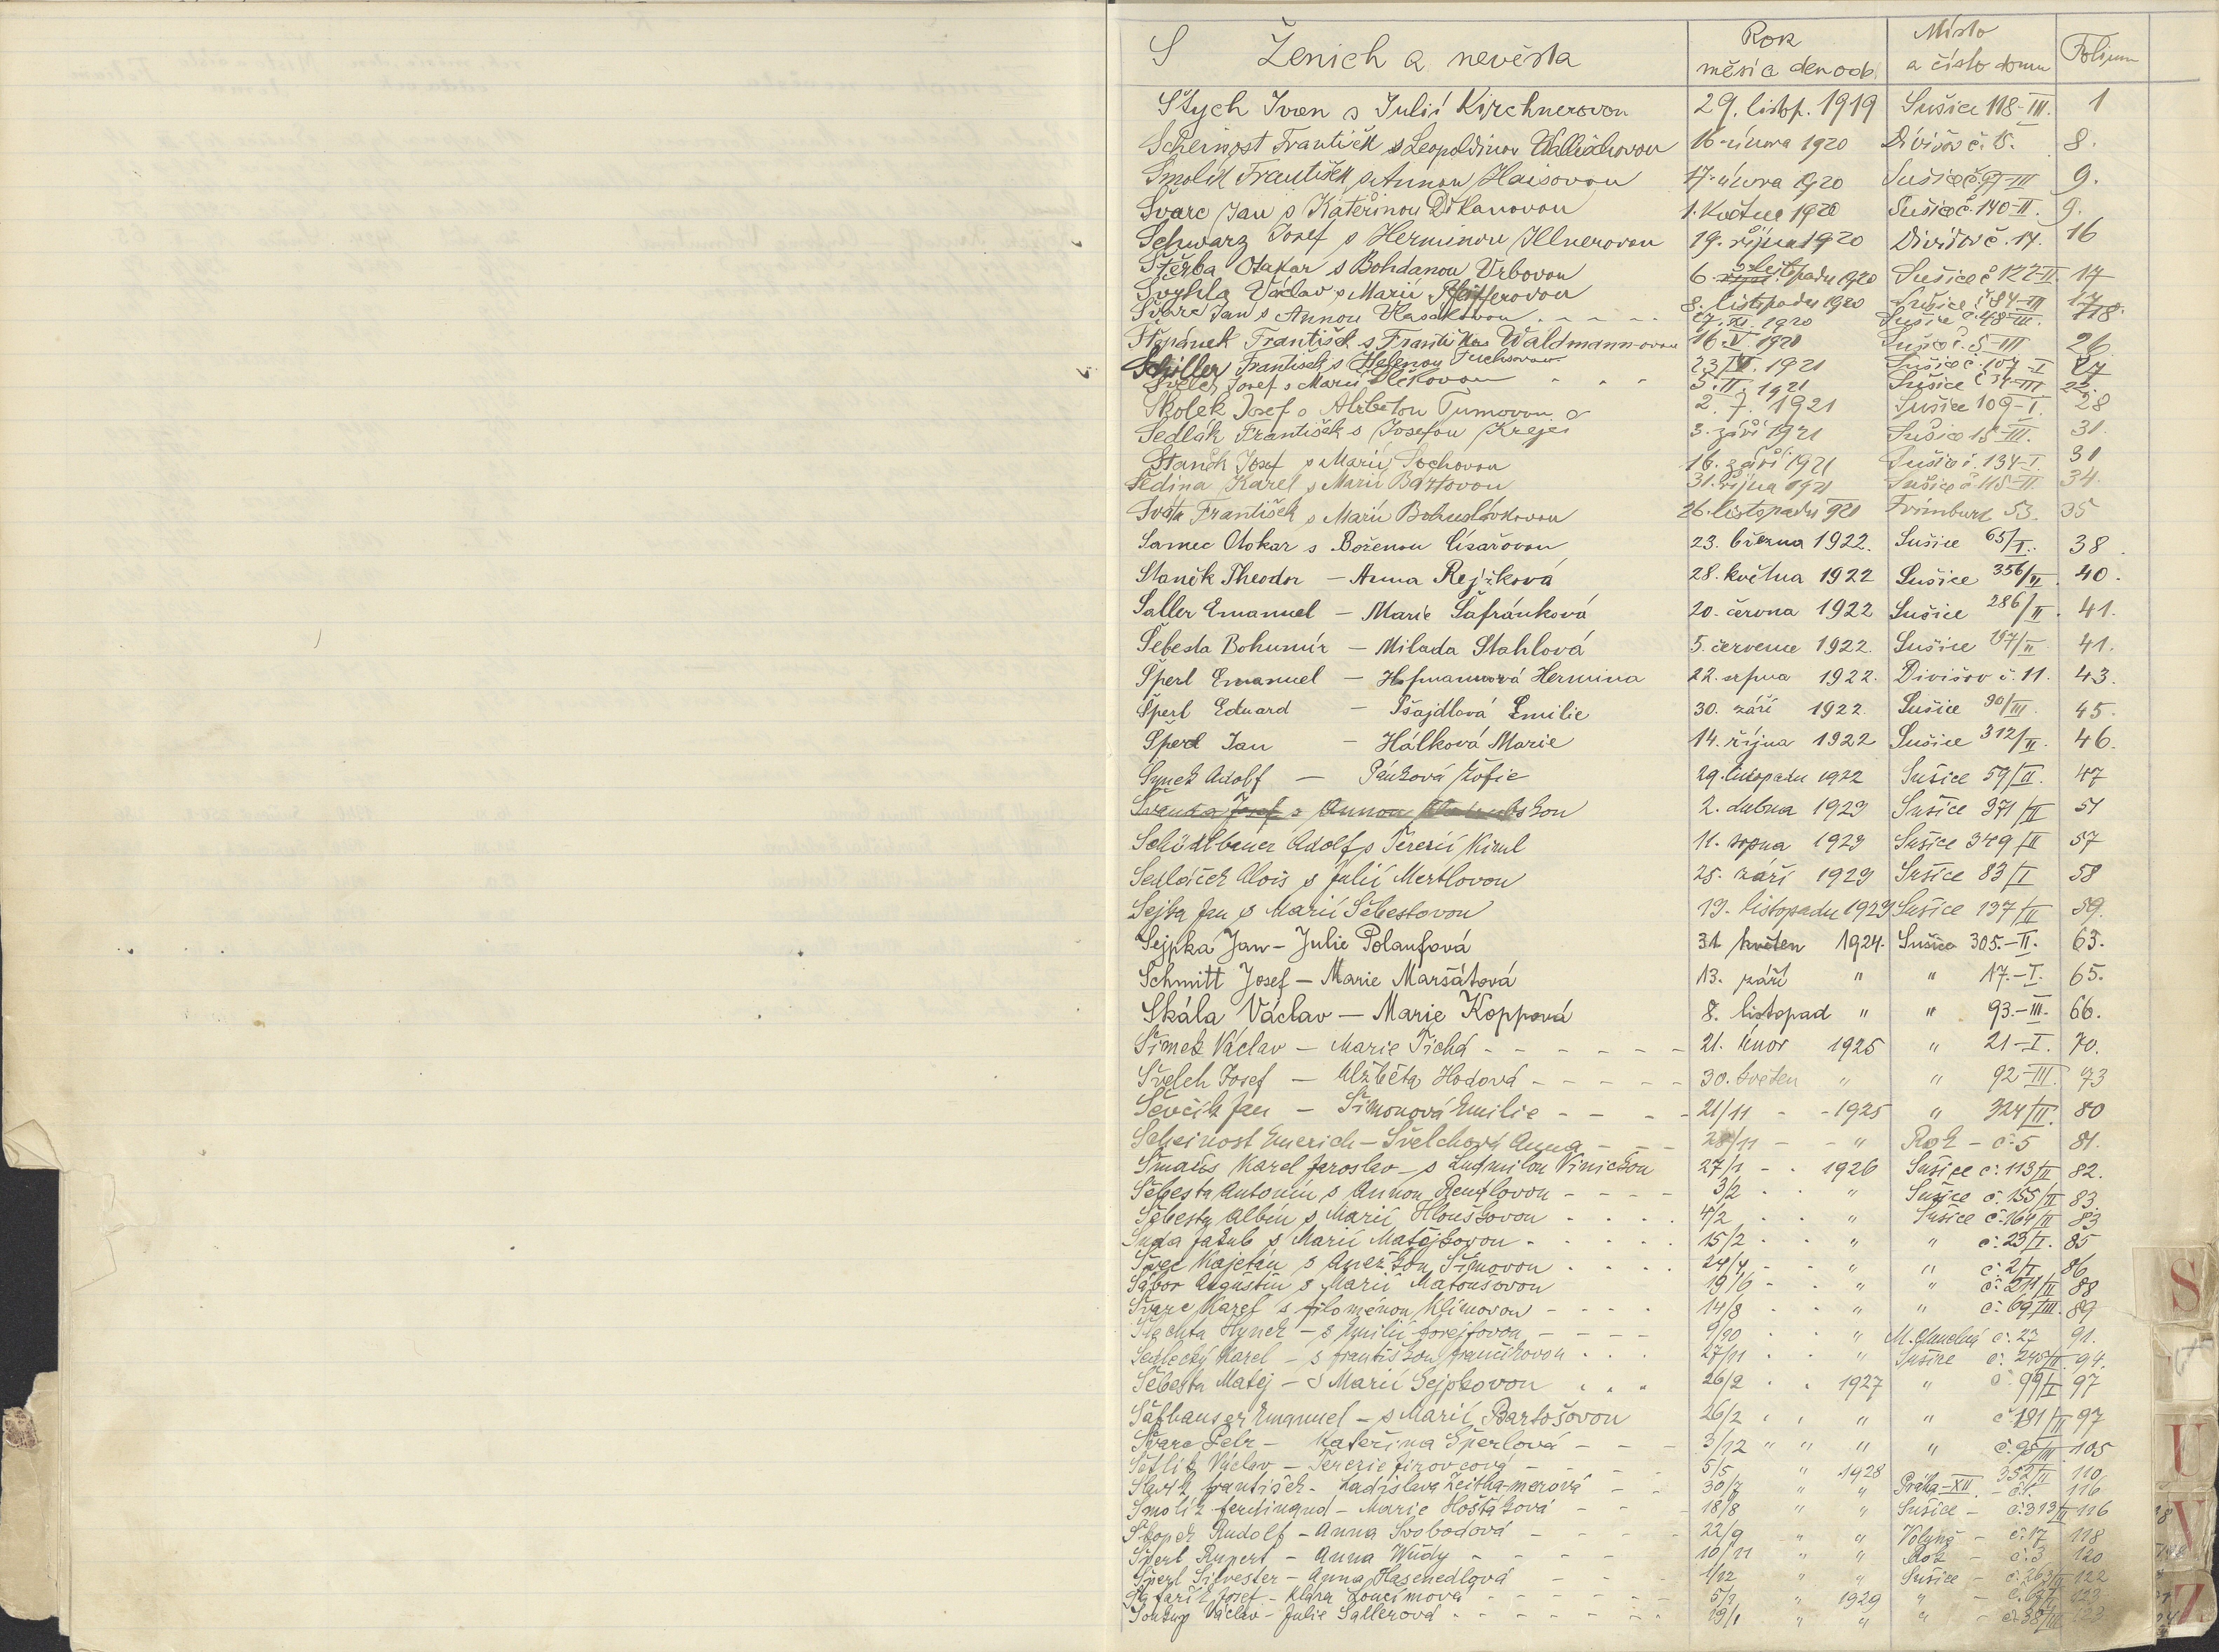 S Ženich a nevěsta Rok měsíc den odd. Místo a číslo domu Folium
Stych Ivan s Julií Kirchnerovou 29. listop. 1919 Sušice 118-III. 1
Scheinost František s Leopoldinou 16. února 1920 Divišov č. 15. 8.
Smolík František s Annou Haisovou 17. února 1920 Sušice č. 97-III 9.
Švarc Jan s Kateřinou Děkanovou 1. května 1920 Sušice č. 140-II. 9.
Schwarz Josef s Herminou Illnerovou 19. října 1920 Divišov č. 14. 16
Štěrba Otakar s Bohdanou Vrbovou 6. listopadu 1920 Sušice č 122-II 17
Švyhla Václav s Marií Pfeifferovou 8. listopadu 1920 Sušice č 84-III 17
Švarc Jan s Annou Vlasákovou 27. XI. 1920 Sušice č. 48-III. 18.
Štěpánek František s Františkou Waldmannovou 16. V 1921 Sušice č. 5-III 26
Schiller František s Helenou Fuchsovou 23 IV. 1921 Sušice č 107-I 27
Švelch Josef s Marií 5. II. 1921 Sušice č 34-III 22.
Skolek Josef s Alžbětou Tumovou 2. 7. 1921 Sušice 109-I. 28
Sedlák František s Josefou Krejčí 3. září 1921 Sušice 15-III. 31.
Staněk Josef s Marií Sochovou 16. září 1921 Sušice č. 134-I. 31
Šedina Karel s Marií Bártovou 31. října 1921 Sušice č 115-II. 34.
Sváta František s Marií Bohuslávkovou 26. listopadu 921 Frimburk 53. 35
Samec Otokar s Boženou Císařovou 23. března 1922. Sušice 65/I. 38.
Staněk Theodor — Anna Rejžková 28. května 1922 Sušice 356/II. 40.
Saller Emanuel — Marie Šafránková 20. června 1922 Sušice 286/II. 41.
Šebesta Bohumír — Milada Stahlová 5. července 1922. Sušice 197/II 41.
Šperl Emanuel — Hofmannová Hermina 22. srpna 1922. Divišov č. 11. 43.
Šperl Eduard — Pšajdlová Emilie 30. září 1922. Sušice 90/III. 45.
Šperl Jan — Hálková Marie 14. října 1922 Sušice 312/II. 46.
Synek Adolf — Pánková Žofie 29. listopadu 1922 Sušice 59/II. 47
Švanda Josef s Annou 2. dubna 1923 Sušice 371/II 51
Schödlbauer Adolf s Terezií Kiml 11. srpna 1923 Sušice 349/II 57
Sedláček Alois s Julií Mertlovou 25. září 1923 Sušice 83/I 58
Sejba Jan s Marií Šebestovou 19. listopadu 1923 Sušice 137/II 59.
Sejpka Jan — Julie Polaufová 31. květen 1924. Sušice 305.-II. 63.
Schmitt Josef — Marie Maršátová 13. září " " 17.-I. 65.
Skála Václav — Marie Koppová 8. listopad " " 93.-III. 66.
Šimek Václav — Marie Tichá 21. únor 1925 " 21-I. 70.
Švelch Josef — Alžběta Hodová 30. květen " " 92-III. 73
Ševčík Jan — Šimonová Emilie 21/11 - -1925 " 324/II. 80
Scheinost Emerich — Švelchová Anna 28/11 - - " Rok - č. 5 81.
Šmaus Karel Jaroslav — s Ludmilou Vinickou 27/1 - . 1926 Sušice č. 113/II 82.
Šebesta Antonín s Annou Rendlovou 3/2 . . " Sušice č. 155/II 83.
Šebesta Albín s Marií Hlouškovou 4/2 . . " Sušice č. 164/II 83
Suda Jakub s Marií Matějkovou 15/2 . . " " č. 23/I. 85
Švec Kajetán s Anežkou Šímovou 24/4 - - " " č. 2/I 86
Sábor Augustin s Marií Matoušovou 19/6 - . " " č. 211/II 88
Švarc Karel s Filoménou Klímovou 14/8 . . " " č. 69/III. 89
Šlachta Hynek — s Emilií 9/10 . . " č. 27 91.
Sedlecký Karel — s Františkou Frančíkovou 27/11 . . " Sušice č. 245/II 94.
Šebesta Matěj — s Marií Sejpkovou 26/2 . . 1927 " č. 99/I 97
Šafhauser Emanuel — s Marií Bartošovou 26/2 . . " " č 181/II 97
Švarc Petr — Kateřina Šperlová 3/12 " " " " č. 95/III 105
Šetlík Václav — Terezie Jirovcová 5/5 " 1928 352/II 110
Slavík František — Ladislava 30/7 " " Praha-XII. - č. 1. 116
Smolík Ferdinand — Marie Hošťáková 18/8 " " Sušice - č. 313/II 116
Škopek Rudolf — Anna Svobodová 22/9 " " Volyně - č. 17 118
Šperl Rupert — Anna Wudy 10/11 " " Rok - č. 3 120
Šperl Silvester — Anna Hasenedlová 1/12 " " Sušice - č. 263/II 122
Josef — Klára Loučímová 5/1 " 1929 " 123
Václav — Julie Sallerová 19/1 " " " č. 38/III
S
U
V
Z